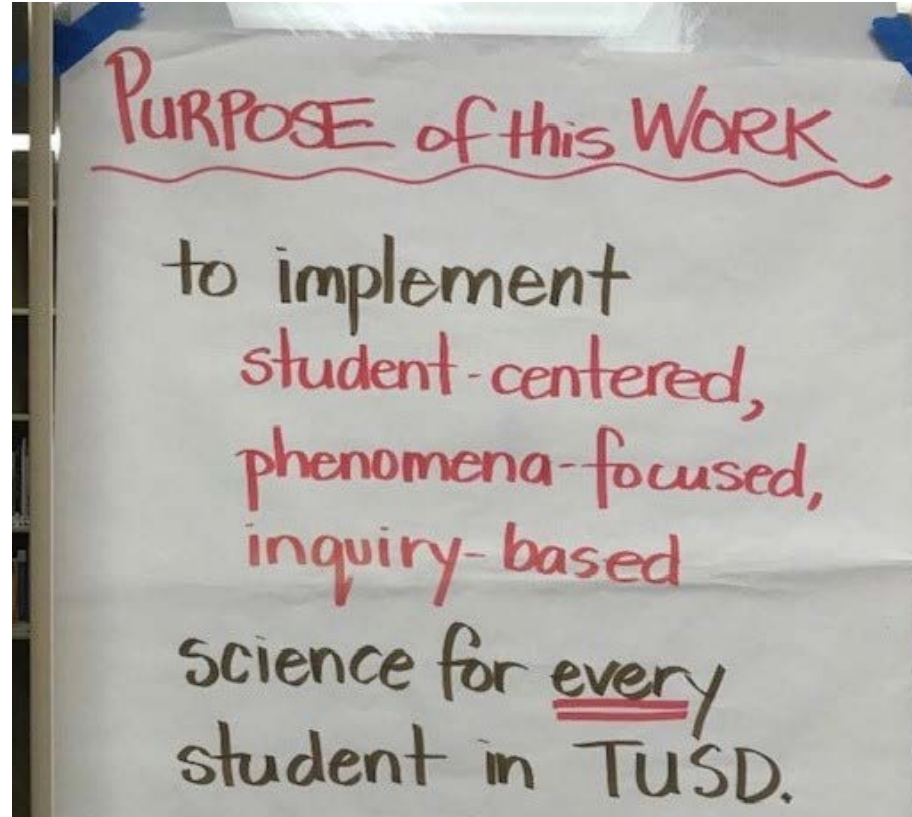 PURPOSE of this WORK
to implement
student-centered,
phenomena-focused,
inquiry-based
science for every
student in TUSD.